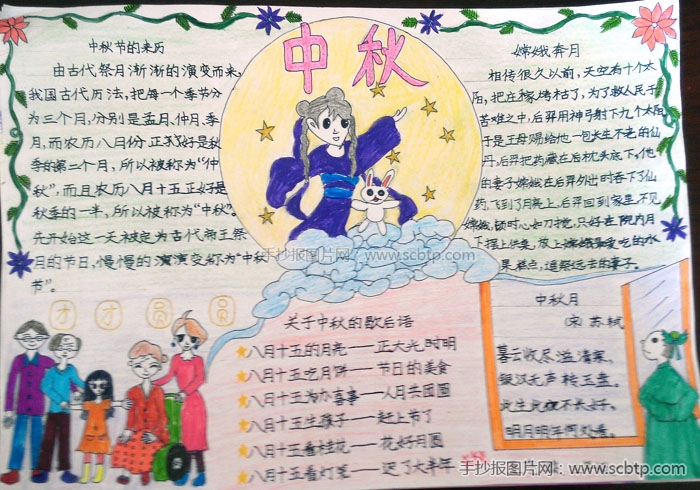 中秋
中秋节的来历
由古代祭月渐渐的演变而来,
我国古代历法,把每一个季节分
为三个月,分别是孟月、仲月、季
月,而农历八月份正好是秋
季的第二个月,所以被称为“仲
秋”,而且农历八月十五正好是
秋季的一半,所以被称为“中秋”。
先开始这一天被定为古代帝王祭
月的节日,慢慢的演变称为“中秋
节”。
嫦娥奔月
相传很久以前,天空有十个太
阳,把庄稼烤枯了,为了救人民于
苦难之中,后羿用神弓射下九个太阳
于是王母赐给他一包长生不老的仙
丹,后羿把药藏在后枕头底下。他
的妻子嫦娥在后羿外出时吞下了仙
药,飞到了月亮上,后羿回到家里,不见
嫦娥,顿时心如刀搅,只好在院内月
下摆上供桌,放上嫦娥最爱吃的水
果糕点,遥祭远去的妻子。
手抄报图片网:www.scbtp.com
关于中秋的歇后语
八月十五的月亮——正大光明
八月十五吃月饼——节日的美食
八月十五办喜事——人月共团圆
八月十五生孩子——赶上节了
八月十五看桂花——花好月圆
八月十五看灯笼——迟了大半年
中秋月
宋 苏轼
暮云收尽溢清寒,
银汉无声转玉盘。
此生此夜不长好,
明月明年何处看。
手抄报图片网:www.scbtp.com